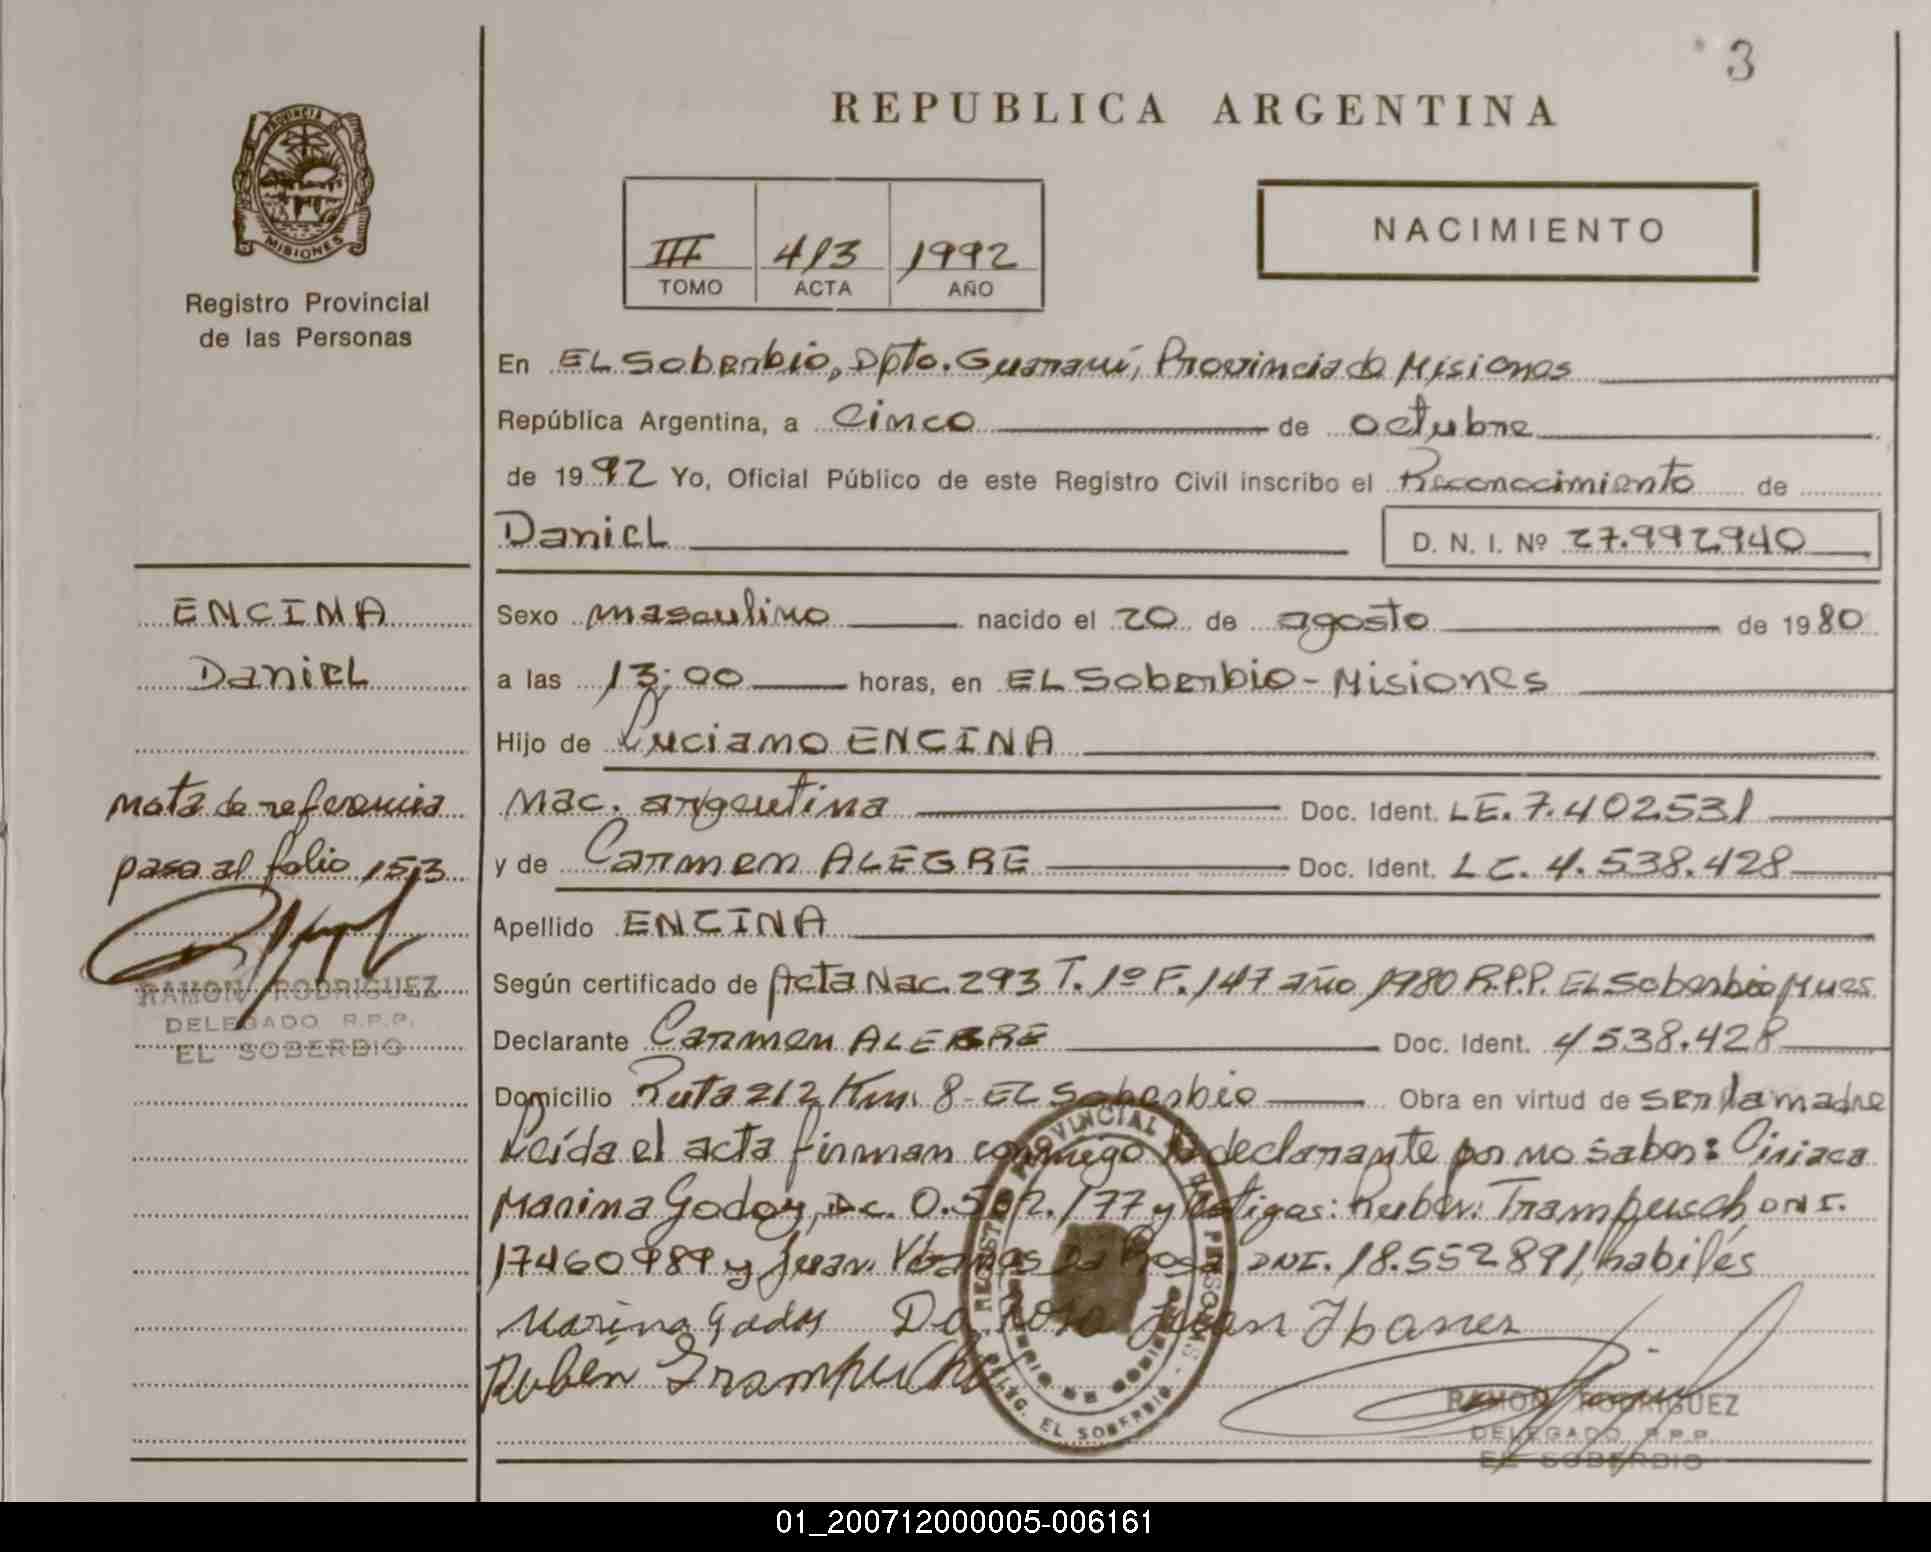 3
REPUBLICA ARGENTINA
PROVINCIA DE
MISIONES
Registro Provincial
de las Personas
III 413 1992
TOMO ACTA AÑO
NACIMIENTO
En EL Soberbio, Dpto. Guaraní, Provincia de Misiones
República Argentina, a cinco de octubre
de 1992 Yo, Oficial Público de este Registro Civil inscribo el Reconocimiento de
Daniel D. N. I. Nº 27.992940
ENCINA
Daniel
Nota de referencia
pasa al folio 153
RAMON RODRIGUEZ
DELEGADO R.P.P.
EL SOBERBIO
Sexo masculino nacido el 20 de agosto de 1980
a las 13:00 horas, en EL Soberbio - Misiones
Hijo de Luciano ENCINA
Nac. argentina Doc. Ident. LE. 7.402531
y de Carmen ALEGRE Doc. Ident. LC. 4.538.428
Apellido ENCINA
Según certificado de Acta Nac. 293 T. 1º F. 147 año 1980 R.P.P. EL Soberbio Mnes
Declarante Carmen ALEGRE Doc. Ident. 4538.428
Domicilio Ruta 212 Km. 8 - EL Soberbio Obra en virtud de ser la madre
Leída el acta firman conmigo la declarante por no saber: Ciriaca
Marina Godoy, Dc. 0.562.177 y testigos: Ruben Trampusch DNI.
17460989 y Juan Ybanes Da Rosa DNI. 18.552891, habiles
Marina Godoy Da Rosa Juan Ibanes
Ruben Trampusch
REGISTRO PROVINCIAL DE LAS PERSONAS
MINISTERIO DE GOBIERNO
DELEG. EL SOBERBIO
RAMON RODRIGUEZ
DELEGADO R.P.P.
EL SOBERBIO
01_200712000005-006161